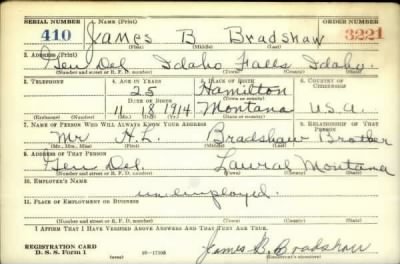 SERIAL NUMBER 1. NAME (Print) ORDER NUMBER
410 James B Bradshaw 3221
(First) (Middle) (Last)
2. ADDRESS (Print)
Gen Del Idaho Falls Idaho.
(Number and street or R. F. D. number) (Town) (County) (State)
3. TELEPHONE 4. AGE IN YEARS 5. PLACE OF BIRTH 6. COUNTRY OF CITIZENSHIP
25 Hamilton
DATE OF BIRTH (Town or county)
11 18 1914 Montana U.S.A.
(Exchange) (Number) (Mo.) (Day) (Yr.) (State or country)
7. NAME OF PERSON WHO WILL ALWAYS KNOW YOUR ADDRESS 8. RELATIONSHIP OF THAT PERSON
Mr H.L. Bradshaw Brother
(Mr., Mrs., Miss) (First) (Middle) (Last)
9. ADDRESS OF THAT PERSON
Gen Del. Laural Montana
(Number and street or R. F. D. number) (Town) (County) (State)
10. EMPLOYER'S NAME
unemployed.
11. PLACE OF EMPLOYMENT OR BUSINESS
(Number and street or R. F. D. number) (Town) (County) (State)
I AFFIRM THAT I HAVE VERIFIED ABOVE ANSWERS AND THAT THEY ARE TRUE.
REGISTRATION CARD
D. S. S. Form 1 James B. Bradshaw